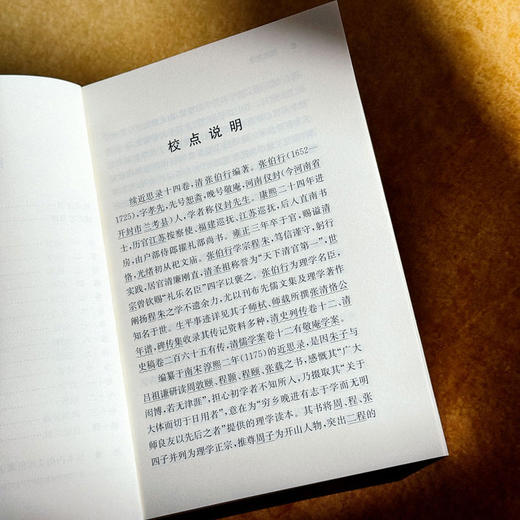 校点说明
续近思录十四卷,清张伯行编著。张伯行(1652—
1725),字孝先,号恕斋,晚号敬庵,河南仪封(今河南省
开封市兰考县)人,学者称仪封先生。康熙二十四年进
士,历官江苏按察使、福建巡抚、江苏巡抚,后入直南书
房,由户部侍郎擢礼部尚书。雍正三年卒于官,赐谥清
恪,光绪初从祀文庙。张伯行学宗程朱,笃信谨守,躬行
实践,居官清廉刚直,清圣祖称誉为“天下清官第一”,世
宗曾钦赐“礼乐名臣”四字以褒之。张伯行为理学名臣,
阐扬程朱之学不遗余力,尤以刊布先儒文集及理学著作
知名于世。生平事迹详见其子师栻、师载所撰张清恪公
年谱,碑传集收录其传记资料多种,清史列传卷十二、清
史稿卷二百六十五有传,清儒学案卷十二有敬庵学案。
编纂于南宋淳熙二年(1175)的近思录,是因朱子与
吕祖谦研读周敦颐、程颢、程颐、张载之书,感慨其“广大
闳博,若无津涯”,担心初学者不知所入,乃掇取其“关于
大体而切于日用者”,意在为“穷乡晚进有志于学而无明
师良友以先后之者”提供的理学读本。其书将周、程、张
四子并列为理学正宗,推尊周子为开山人物,突出二程的